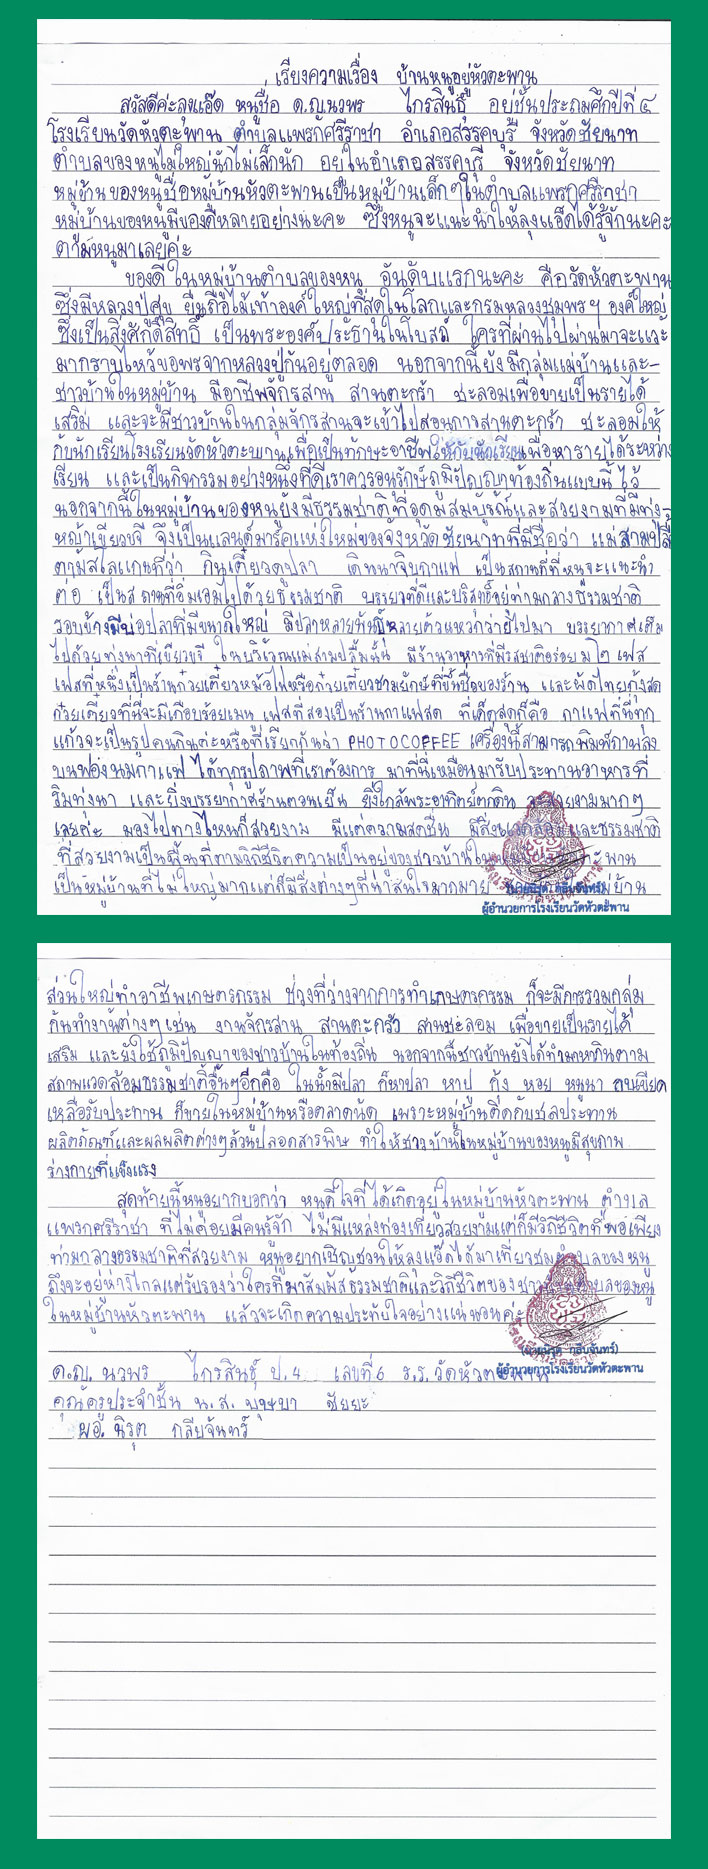 เรียงความเรื่อง บ้านหนูอยู่หัวตะพาน
สวัสดีค่ะลุงแอ๊ด หนูชื่อ ด.ญ.นวพร ไกรสินธุ์ อยู่ชั้นประถมศึกปีที่ ๔
โรงเรียนวัดหัวตะพาน ตำบลแพรกศรีราชา อำเภอสรรคบุรี จังหวัดชัยนาท
ตำบลของหนูไม่ใหญ่นักไม่เล็กนัก อยู่ในอำเภอสรรคบุรี จังหวัดชัยนาท
หมู่บ้านของหนูชื่อหมู่บ้านหัวตะพานเป็นหมู่บ้านเล็กๆในตำบลแพรกศรีราชา
หมู่บ้านของหนูมีของดีหลายอย่างนะคะ ซึ่งหนูจะแนะนำให้ลุงแอ๊ดได้รู้จักนะคะ
ตามหนูมาเลยค่ะ
ของดีในหมู่บ้านตำบลของหนู อันดับแรกนะคะ คือวัดหัวตะพาน
ซึ่งมีหลวงปู่ศุข ยืนถือไม้เท้าองค์ใหญ่ที่สุดในโลกและกรมหลวงชุมพรฯ องค์ใหญ่
ซึ่งเป็นสิ่งศักดิ์สิทธิ์ เป็นพระองค์ประธานในโบสถ์ ใครที่ผ่านไปผ่านมาจะแวะ
มากราบไหว้ขอพรจากหลวงปู่กันอยู่ตลอด นอกจากนี้ยังมีกลุ่มแม่บ้านและ-
ชาวบ้านในหมู่บ้าน มีอาชีพจักรสาน สานตะกร้า ชะลอมเพื่อขายเป็นรายได้
เสริม และจะมีชาวบ้านในกลุ่มจักรสานจะเข้าไปสอนการสานตะกร้า ชะลอมให้
กับนักเรียนโรงเรียนวัดหัวตะพานเพื่อเป็นทักษะอาชีพให้กับนักเรียนเพื่อหารายได้ระหว่าง
เรียน และเป็นกิจกรรมอย่างหนึ่งที่ดีเราควรอนุรักษ์ภูมิปัญญาท้องถิ่นแบบนี้ไว้
นอกจากนี้ในหมู่บ้านของหนูยังมีธรรมชาติที่อุดมสมบูรณ์และสวยงามที่มีทุ่ง-
หญ้าเขียวขจี จึงเป็นแลนด์มาร์คแห่งใหม่ของจังหวัดชัยนาทที่มีชื่อว่า แม่สามปลื้ม
ตามสโลแกนที่ว่า กินเตี๋ยวดูปลา เดินนาจิบกาแฟ เป็นสถานที่ที่หนูจะแนะนำ
ต่อ เป็นสถานที่อิ่มเอมไปด้วยธรรมชาติ บรรยากาศดีและบริสุทธิ์อยู่ท่ามกลางธรรมชาติ
รอบข้างมีบ่อปลาที่มีขนาดใหญ่ มีปลาหลายพันธุ์หลายตัวแหวกว่ายไปมา บรรยากาศเต็ม
ไปด้วยทุ่งนาที่เขียวขจี ในบริเวณแม่สามปลื้มนั้น มีร้านอาหารที่มีรสชาติอร่อย มี ๒ เฟส
เฟสที่หนึ่งเป็นร้านก๋วยเตี๋ยวหม้อไฟหรือก๋วยเตี๋ยวชามยักษ์ที่ขึ้นชื่อของร้าน และผัดไทยกุ้งสด
ก๋วยเตี๋ยวที่นี่จะมีเกือบร้อยเมนู เฟสที่สองเป็นร้านกาแฟสด ที่เด็ดสุดก็คือ กาแฟที่นี่ทุก
แก้วจะเป็นรูปคนกินค่ะหรือที่เรียกกันว่า PHOTOCOFFEE เครื่องนี้สามารถพิมพ์ภาพลง
บนฟองนมกาแฟ ได้ทุกรูปภาพที่เราต้องการ มาที่นี่เหมือนมารับประทานอาหารที่
ริมทุ่งนา และยิ่งบรรยากาศร้านตอนเย็น ยิ่งใกล้พระอาทิตย์ตกดิน จะสวยงามมากๆ
เลยค่ะ มองไปทางไหนก็สวยงาม มีแต่ความสดชื่น มีสิ่งแวดล้อมและธรรมชาติ
ที่สวยงามเป็นพื้นที่ตามวิถีชีวิตความเป็นอยู่ของชาวบ้านใน พาน
เป็นหมู่บ้านที่ไม่ใหญ่มากแต่ก็มีสิ่งต่างๆที่น่าสนใจมากมาย หมู่บ้าน
(นายนิรุต กลีบจันทร์)
ผู้อำนวยการโรงเรียนวัดหัวตะพาน
ส่วนใหญ่ทำอาชีพเกษตรกรรม ช่วงที่ว่างจากการทำเกษตรกรรม ก็จะมีการรวมกลุ่ม
กันทำงานต่างๆ เช่น งานจักรสาน สานตะกร้า สานชะลอม เพื่อขายเป็นรายได้
เสริม และยังใช้ภูมิปัญญาของชาวบ้านในท้องถิ่น นอกจากนี้ชาวบ้านยังได้ทำมาหากินตาม
สภาพแวดล้อมธรรมชาติอื่นๆอีกคือ ในน้ำมีปลา ก็หาปลา หาปู กุ้ง หอย หนูนา กบเขียด
เหลือรับประทาน ก็ขายในหมู่บ้านหรือตลาดนัด เพราะหมู่บ้านติดกับชลประทาน
ผลิตภัณฑ์และผลผลิตต่างๆล้วนปลอดสารพิษ ทำให้ชาวบ้านในหมู่บ้านของหนูมีสุขภาพ
ร่างกายที่แข็งแรง
สุดท้ายนี้หนูอยากบอกว่า หนูดีใจที่ได้เกิดอยู่ในหมู่บ้านหัวตะพาน ตำบล
แพรกศรีราชา ที่ไม่ค่อยมีคนรู้จัก ไม่มีแหล่งท่องเที่ยวสวยงามแต่ก็มีวิถีชีวิตที่พอเพียง
ท่ามกลางธรรมชาติที่สวยงาม หนูอยากเชิญชวนให้ลุงแอ๊ดได้มาเที่ยวชมตำบลของหนู
ถึงจะอยู่ห่างไกลแต่รับรองว่าใครที่มาสัมผัสธรรมชาติและวิถีชีวิตของชาว ตำบลของหนู
ในหมู่บ้านหัวตะพาน แล้วจะเกิดความประทับใจอย่างแน่นอนค่ะ
(นายนิรุต กลีบจันทร์)
ผู้อำนวยการโรงเรียนวัดหัวตะพาน
ด.ญ. นวพร ไกรสินธุ์ ป.4 เลขที่ 6 ร.ร. วัดหัวตะพาน
คุณครูประจำชั้น น.ส. บุษบา ชัยยะ
ผอ. นิรุต กลีบจันทร์